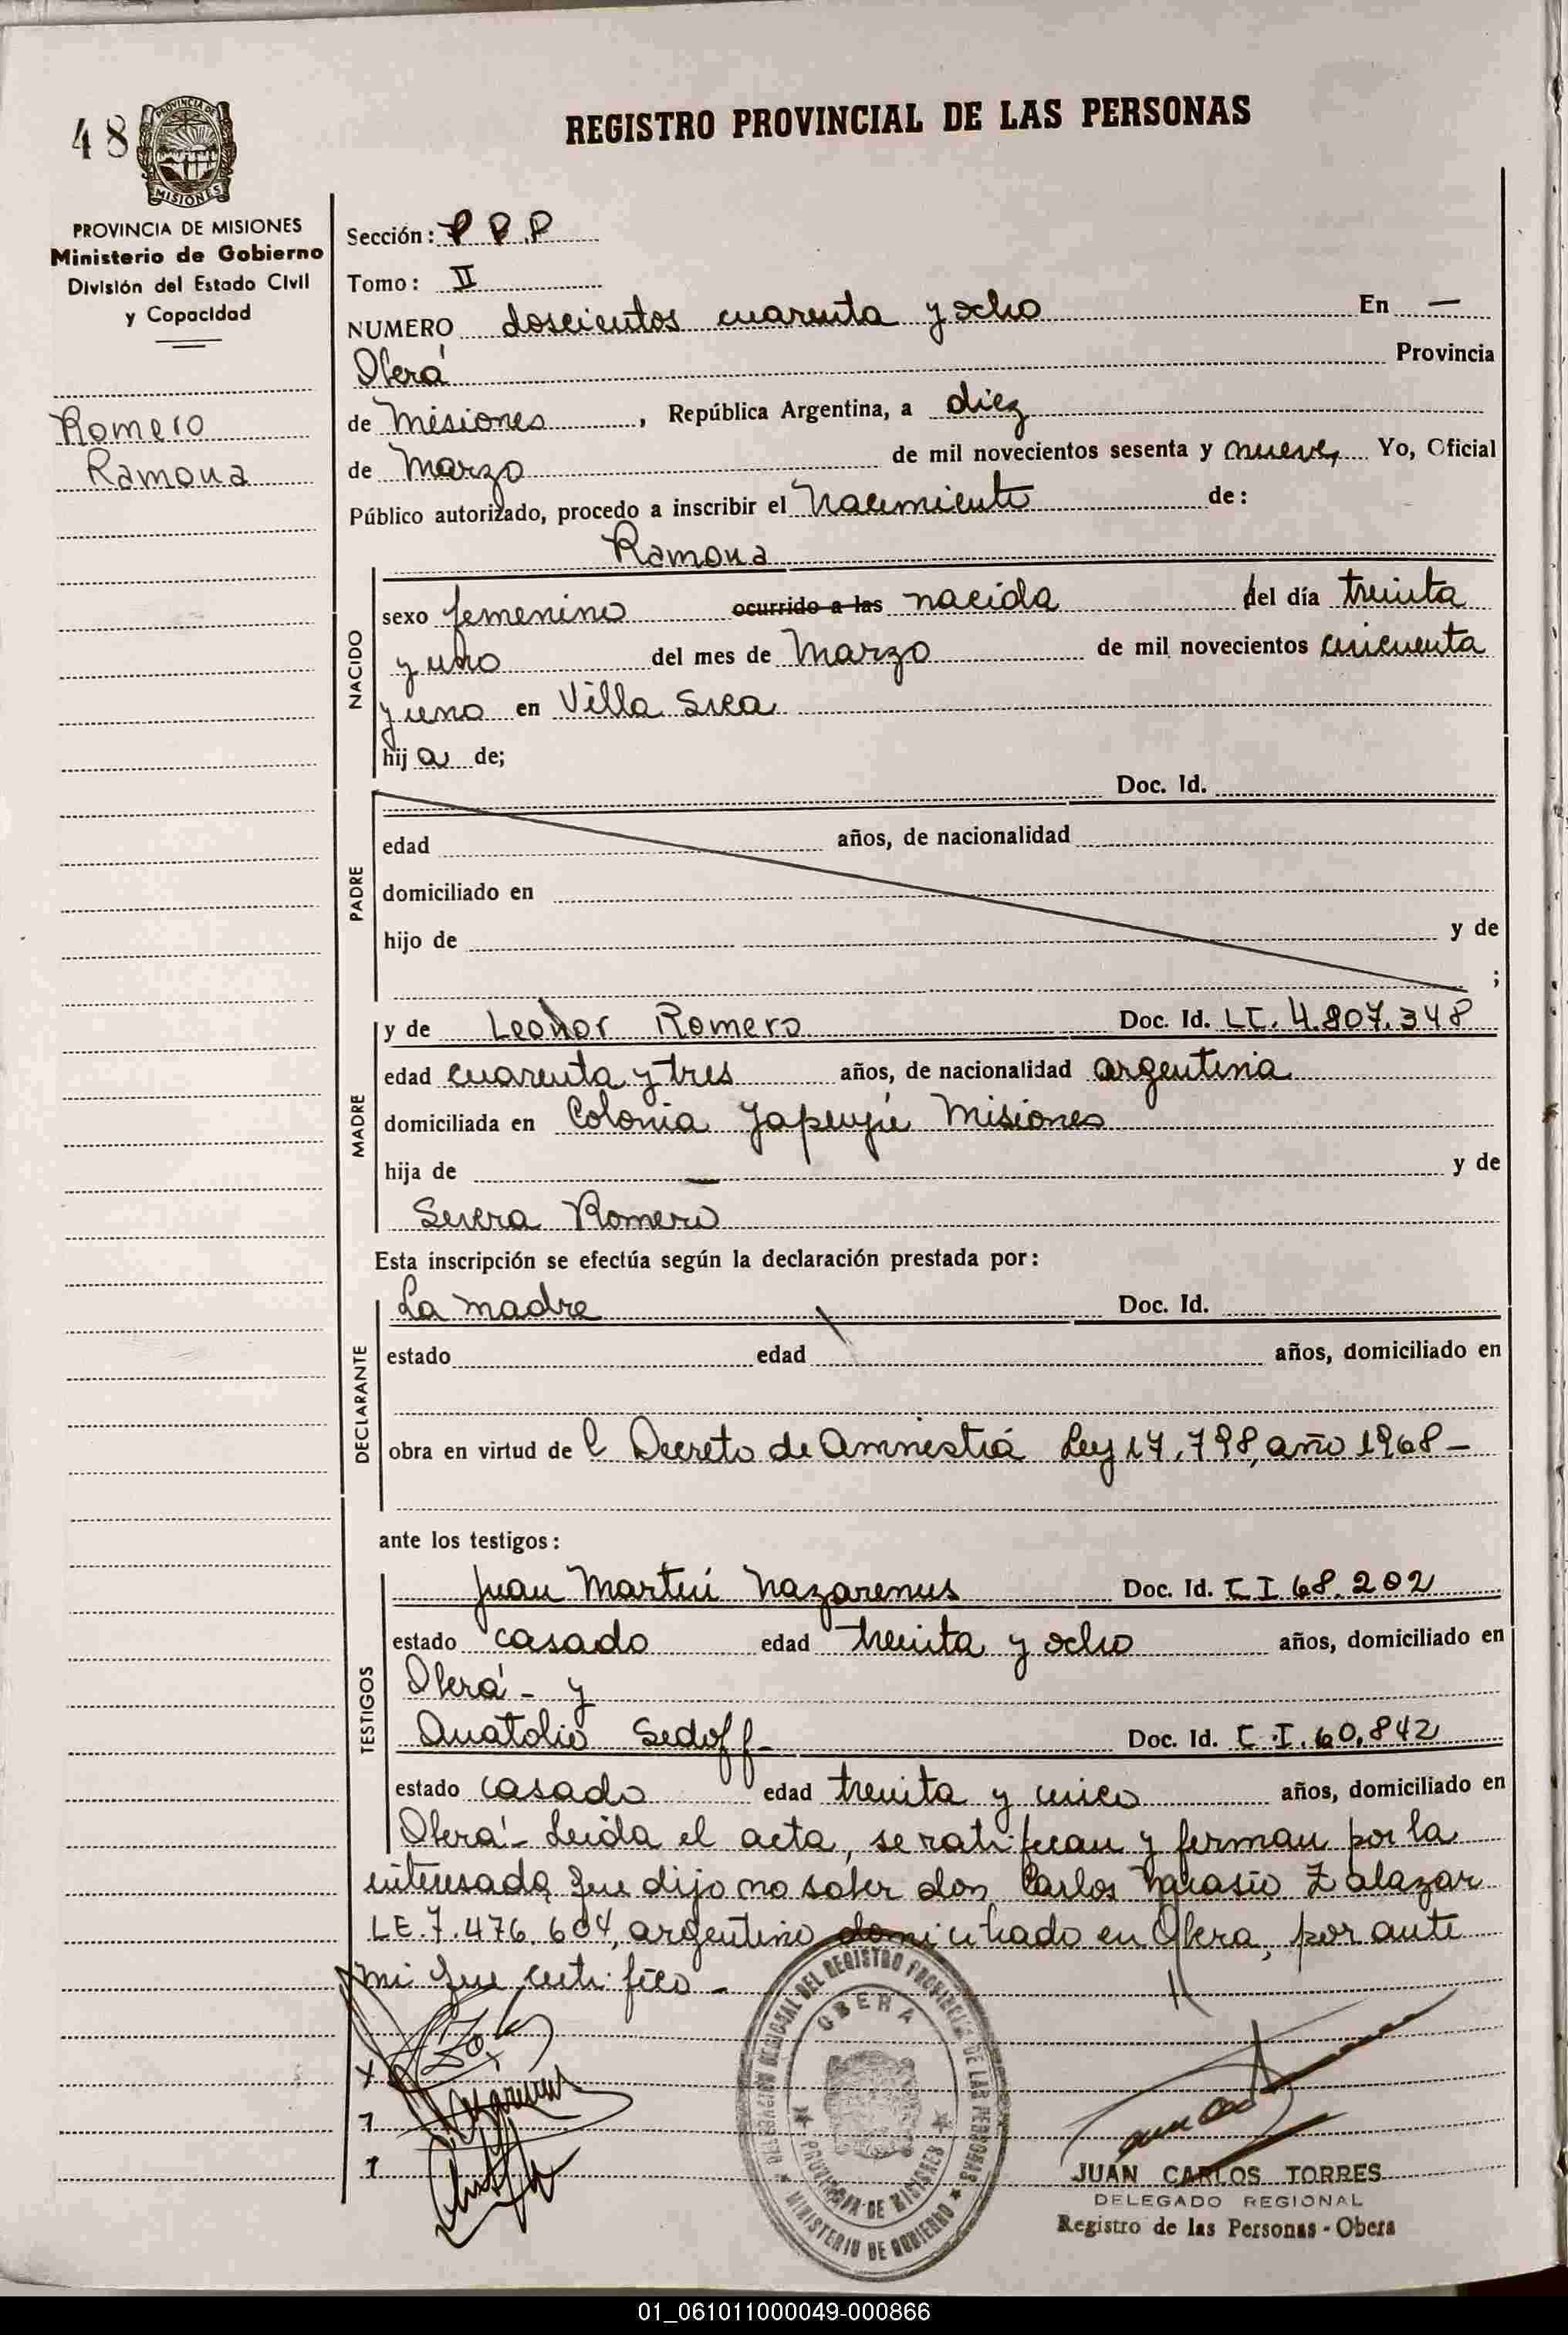 48
PROVINCIA DE
MISIONES
REGISTRO PROVINCIAL DE LAS PERSONAS
PROVINCIA DE MISIONES
Ministerio de Gobierno
División del Estado Civil
y Capacidad
Romero
Ramona
Sección: P P P
Tomo: II
NUMERO doscientos cuarenta y ocho En —
Oberá Provincia
de Misiones, República Argentina, a diez
de Marzo de mil novecientos sesenta y nueve, Yo, Oficial
Público autorizado, procedo a inscribir el Nacimiento de:
Ramona
NACIDO
sexo femenino ocurrido a las nacida del día treinta
y uno del mes de Marzo de mil novecientos cincuenta
y uno en Villa Svea
hija de;
PADRE
Doc. Id.
edad años, de nacionalidad
domiciliado en
hijo de y de
;
MADRE
y de Leonor Romero Doc. Id. LC. 4.807.348
edad cuarenta y tres años, de nacionalidad argentina
domiciliada en Colonia Yapeyú Misiones
hija de — y de
Severa Romero
Esta inscripción se efectúa según la declaración prestada por:
DECLARANTE
La madre Doc. Id.
estado edad años, domiciliado en
obra en virtud del Decreto de Amnestiá Ley 17.798, año 1968 —
ante los testigos:
TESTIGOS
Juan Martin Nazarenus Doc. Id. C I 68.202
estado casado edad treinta y ocho años, domiciliado en
Oberá - y
Anatolio Sedoff - Doc. Id. C.I. 60,842
estado casado edad treinta y cinco años, domiciliado en
Oberá - Leida el acta, se ratifican y firman por la
interesada que dijo no saber don Carlos Zalazar
LE. 7.476.604, argentino domiciliado en Obera, por ante
mi que certifico -
DELEGACION REGIONAL DEL REGISTRO PROVINCIAL DE LAS PERSONAS
OBERA
PROVINCIA DE MISIONES
MINISTERIO DE GOBIERNO
JUAN CARLOS TORRES
DELEGADO REGIONAL
Registro de las Personas - Obera
01_061011000049-000866